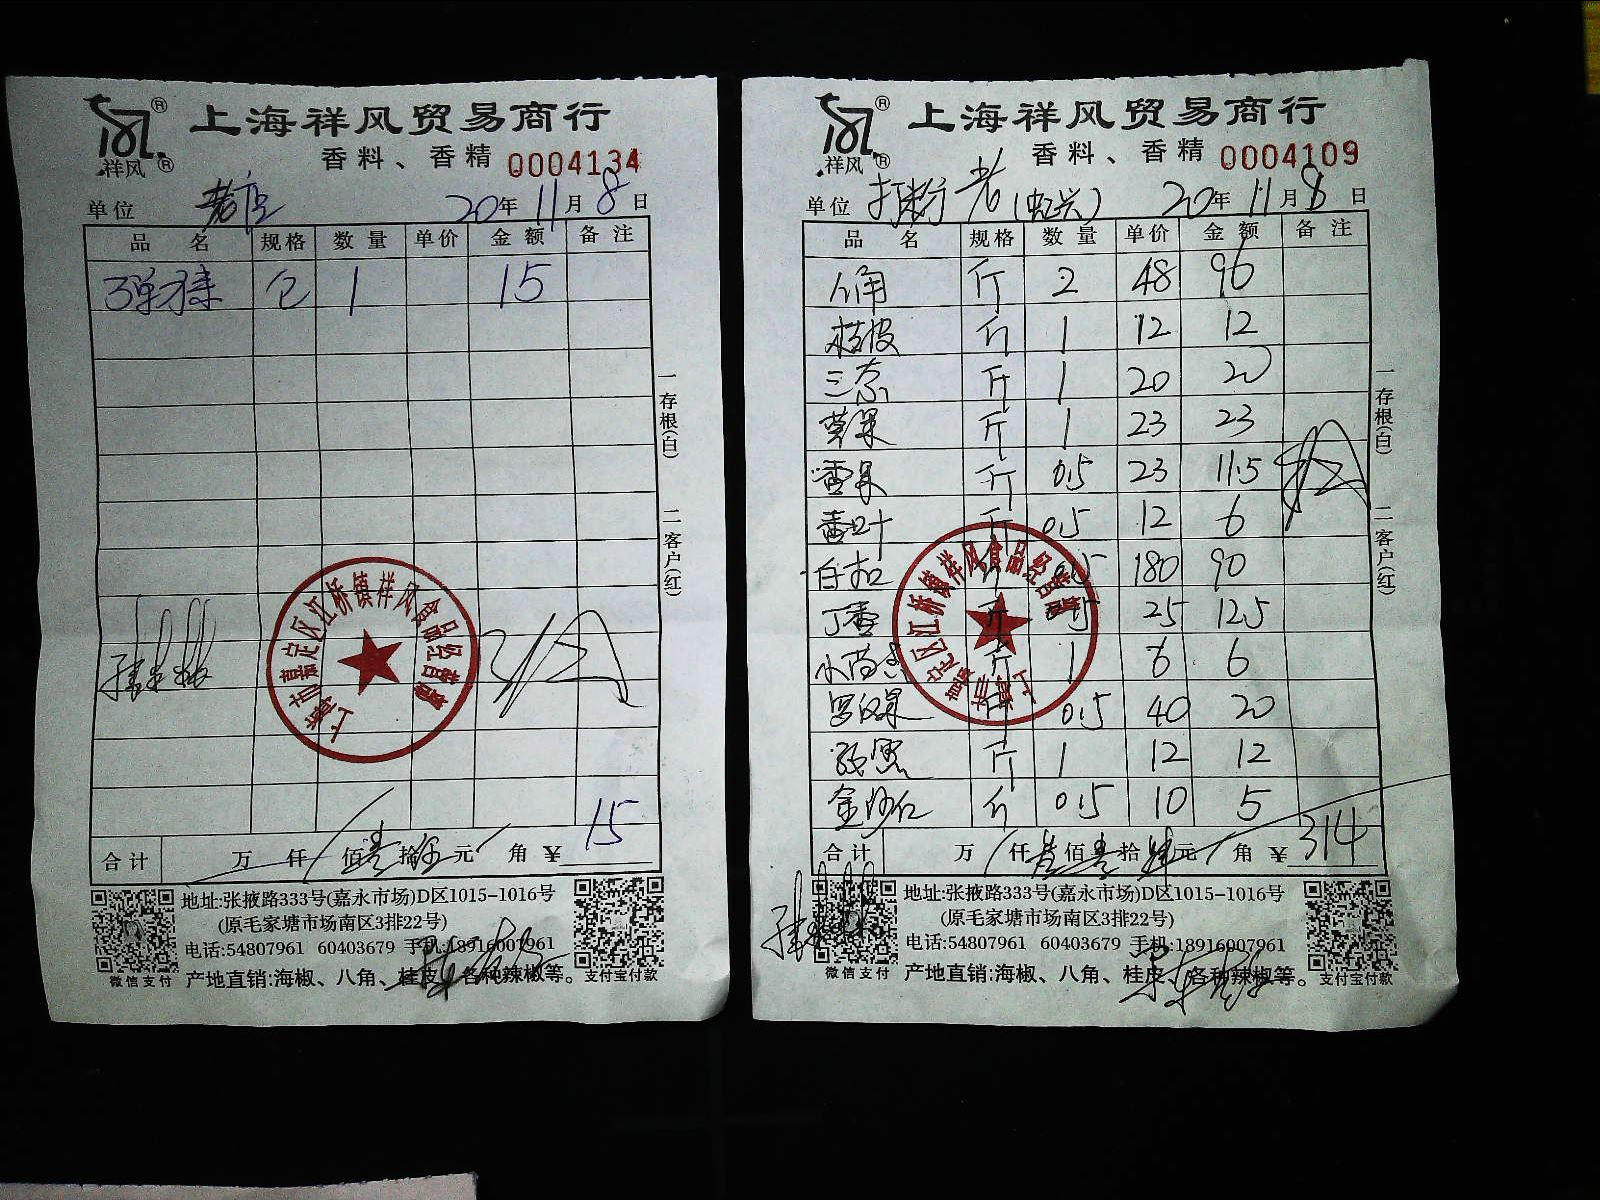 祥风
上海祥风贸易商行
香料、香精 0004134
单位 老店 20年 11月 8日
品名 规格 数量 单价 金额 备注
包 1 15
一存根(白) 二客户(红)
上海市嘉定区江桥镇祥风食品经营部
15
合计 万 仟 佰 壹拾伍元 角 ¥
地址:张掖路333号(嘉永市场)D区1015-1016号
(原毛家塘市场南区3排22号)
电话:54807961 60403679 手机:18916007961
微信支付 产地直销:海椒、八角、桂皮、各种辣椒等。 支付宝付款
祥风
上海祥风贸易商行
香料、香精 0004109
单位 打粉 老 20年 11月 8日
品名 规格 数量 单价 金额 备注
八角 斤 2 48 96
桂皮 斤 1 12 12
三奈 斤 1 20 20
草果 斤 1 23 23
香果 斤 0.5 23 11.5
香叶 斤 0.5 12 6
白扣 斤 0.5 180 90
丁香 斤 0.5 25 12.5
小茴香 斤 1 6 6
罗汉果 斤 0.5 40 20
斤 1 12 12
金砂仁 斤 0.5 10 5
一存根(白) 二客户(红)
上海市嘉定区江桥镇祥风食品经营部
合计 万 仟 叁佰壹拾肆元 角 ¥ 314
地址:张掖路333号(嘉永市场)D区1015-1016号
(原毛家塘市场南区3排22号)
电话:54807961 60403679 手机:18916007961
微信支付 产地直销:海椒、八角、桂皮、各种辣椒等。 支付宝付款